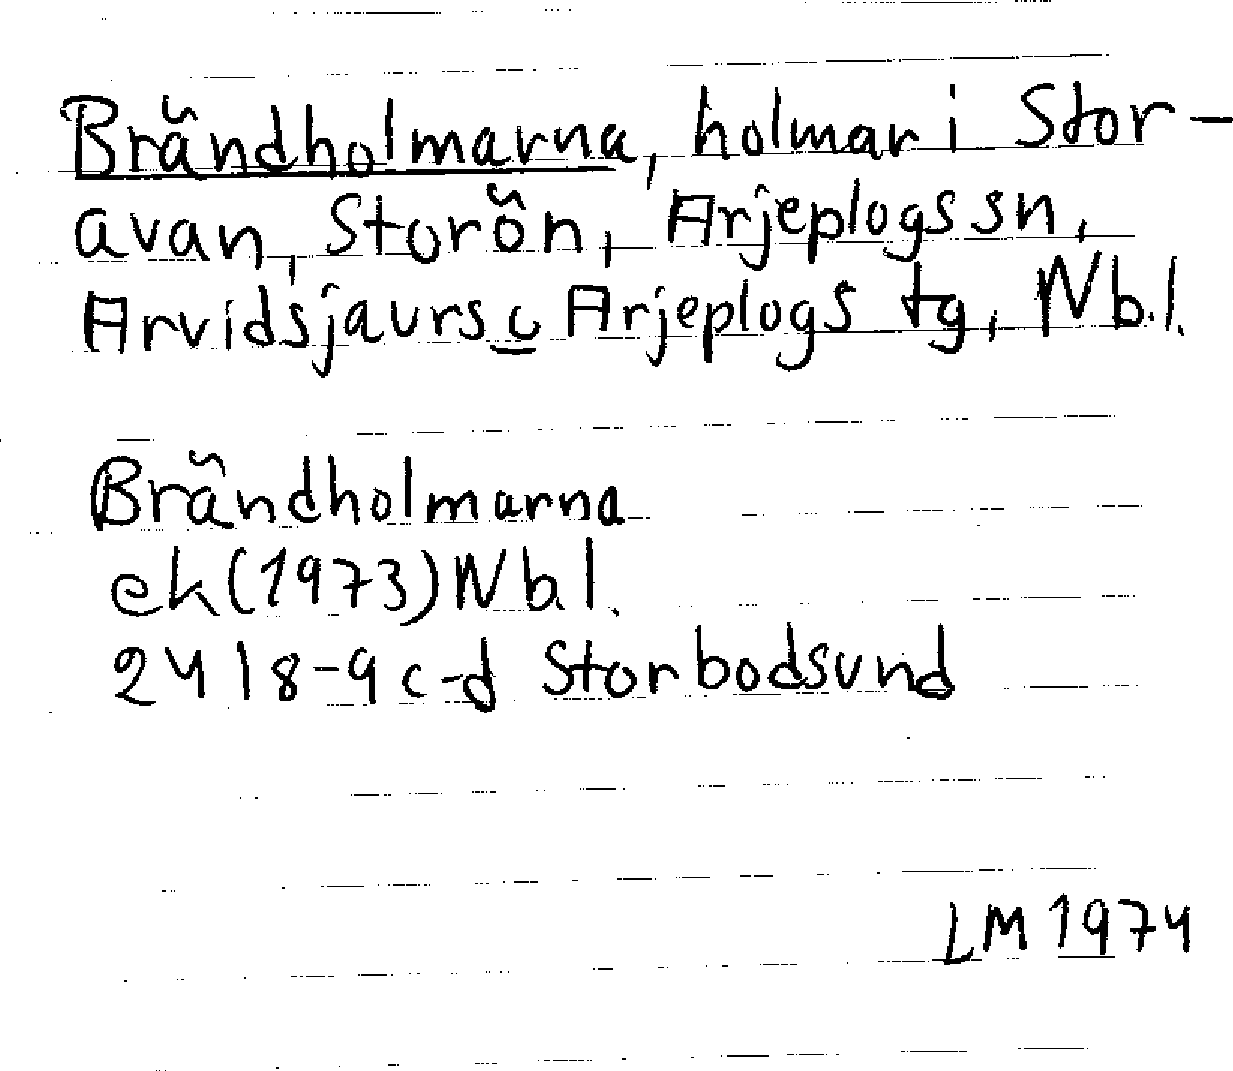 Brändholmarna, holmar i Stor-
avan, Storön, Arjeplogs sn,
Arvidsjaurs o Arjeplogs tg, Nb.l.
Brändholmarna
ek (1973) Nb.l.
24 I 8-9 c-d Storbodsund
LM 1974